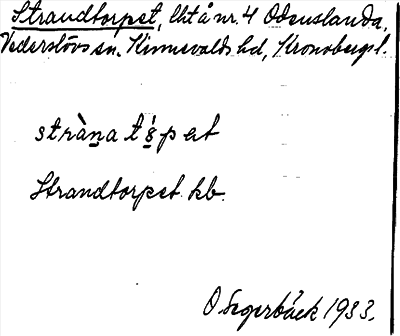 Strandtorpet, lht å nr. 4 Odenslanda,
Vederslövs sn. Kinnevalds hd, Kronobergs l.
stràna ts̀pet
Strandtorpet kb.
O Segerbäck 1933.